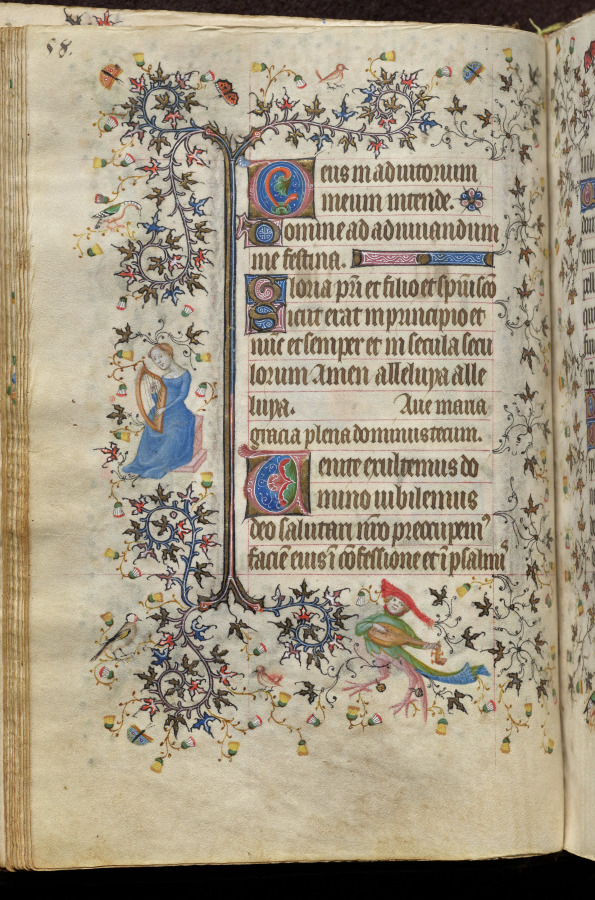 58.
Deus in adiutorium
meum intende.
Domine ad adiuuandum
me festina.
Gloria pri et filio et spui sco
Sicut erat in principio et
nuc et semper et in secula secu
lorum Amen alleluya alle
luya. Aue maria
gracia plena dominus tecum.
Uenite exultemus do
mino iubilemus
deo salutari nro preocupem
facie eius i cofessione et i psalmis